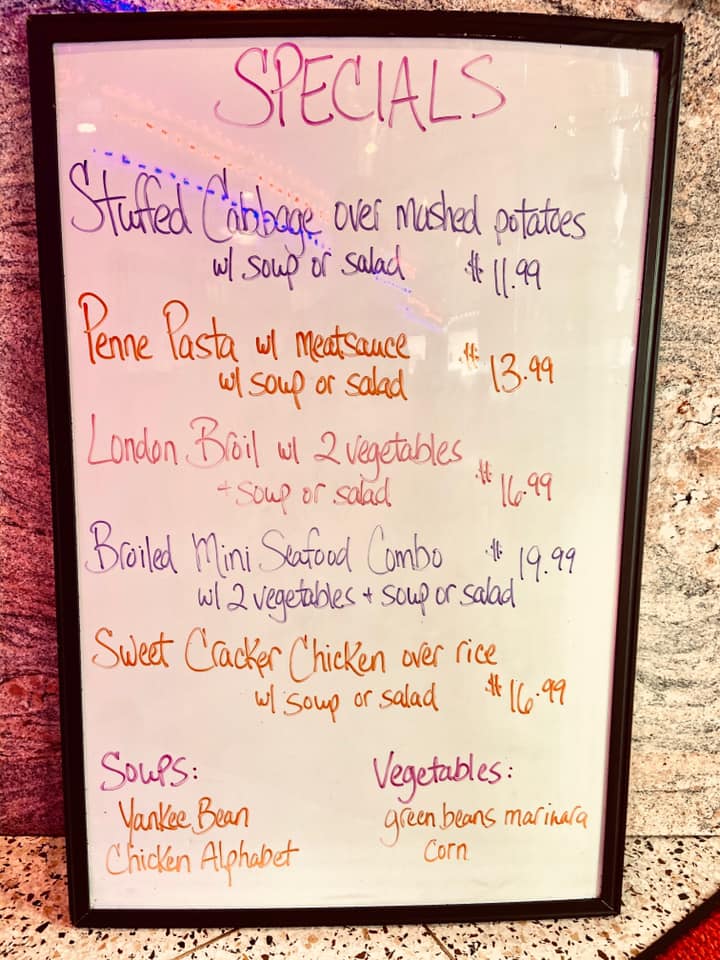 SPECIALS
Stuffed Cabbage over mashed potatoes
w/ soup or salad $11.99
Penne Pasta w/ meatsauce $13.99
w/ soup or salad
London Broil w/ 2 vegetables
+ soup or salad $16.99
Broiled Mini Seafood Combo $19.99
w/ 2 vegetables + soup or salad
Sweet Cracker Chicken over rice
w/ soup or salad $16.99
Soups: Vegetables:
Yankee Bean green beans marinara
Chicken Alphabet Corn